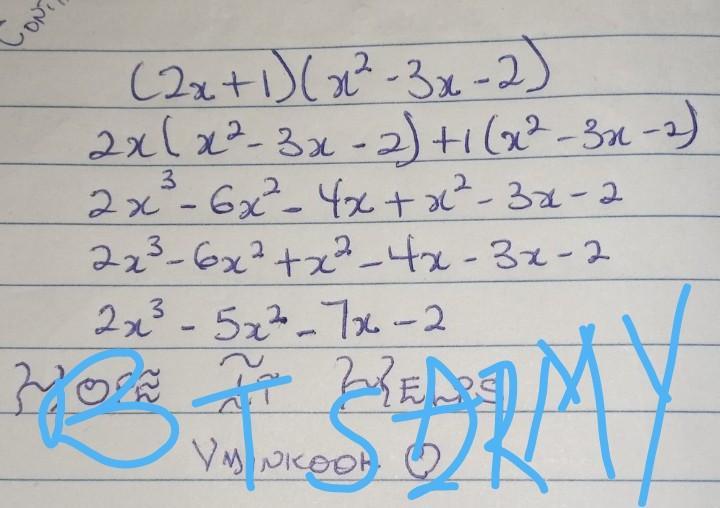 (2x+1)(x²-3x-2)
2x(x²-3x-2)+1(x²-3x-2)
2x³-6x²-4x+x²-3x-2
2x³-6x²+x²-4x-3x-2
2x³-5x²-7x-2
BTS ARMY